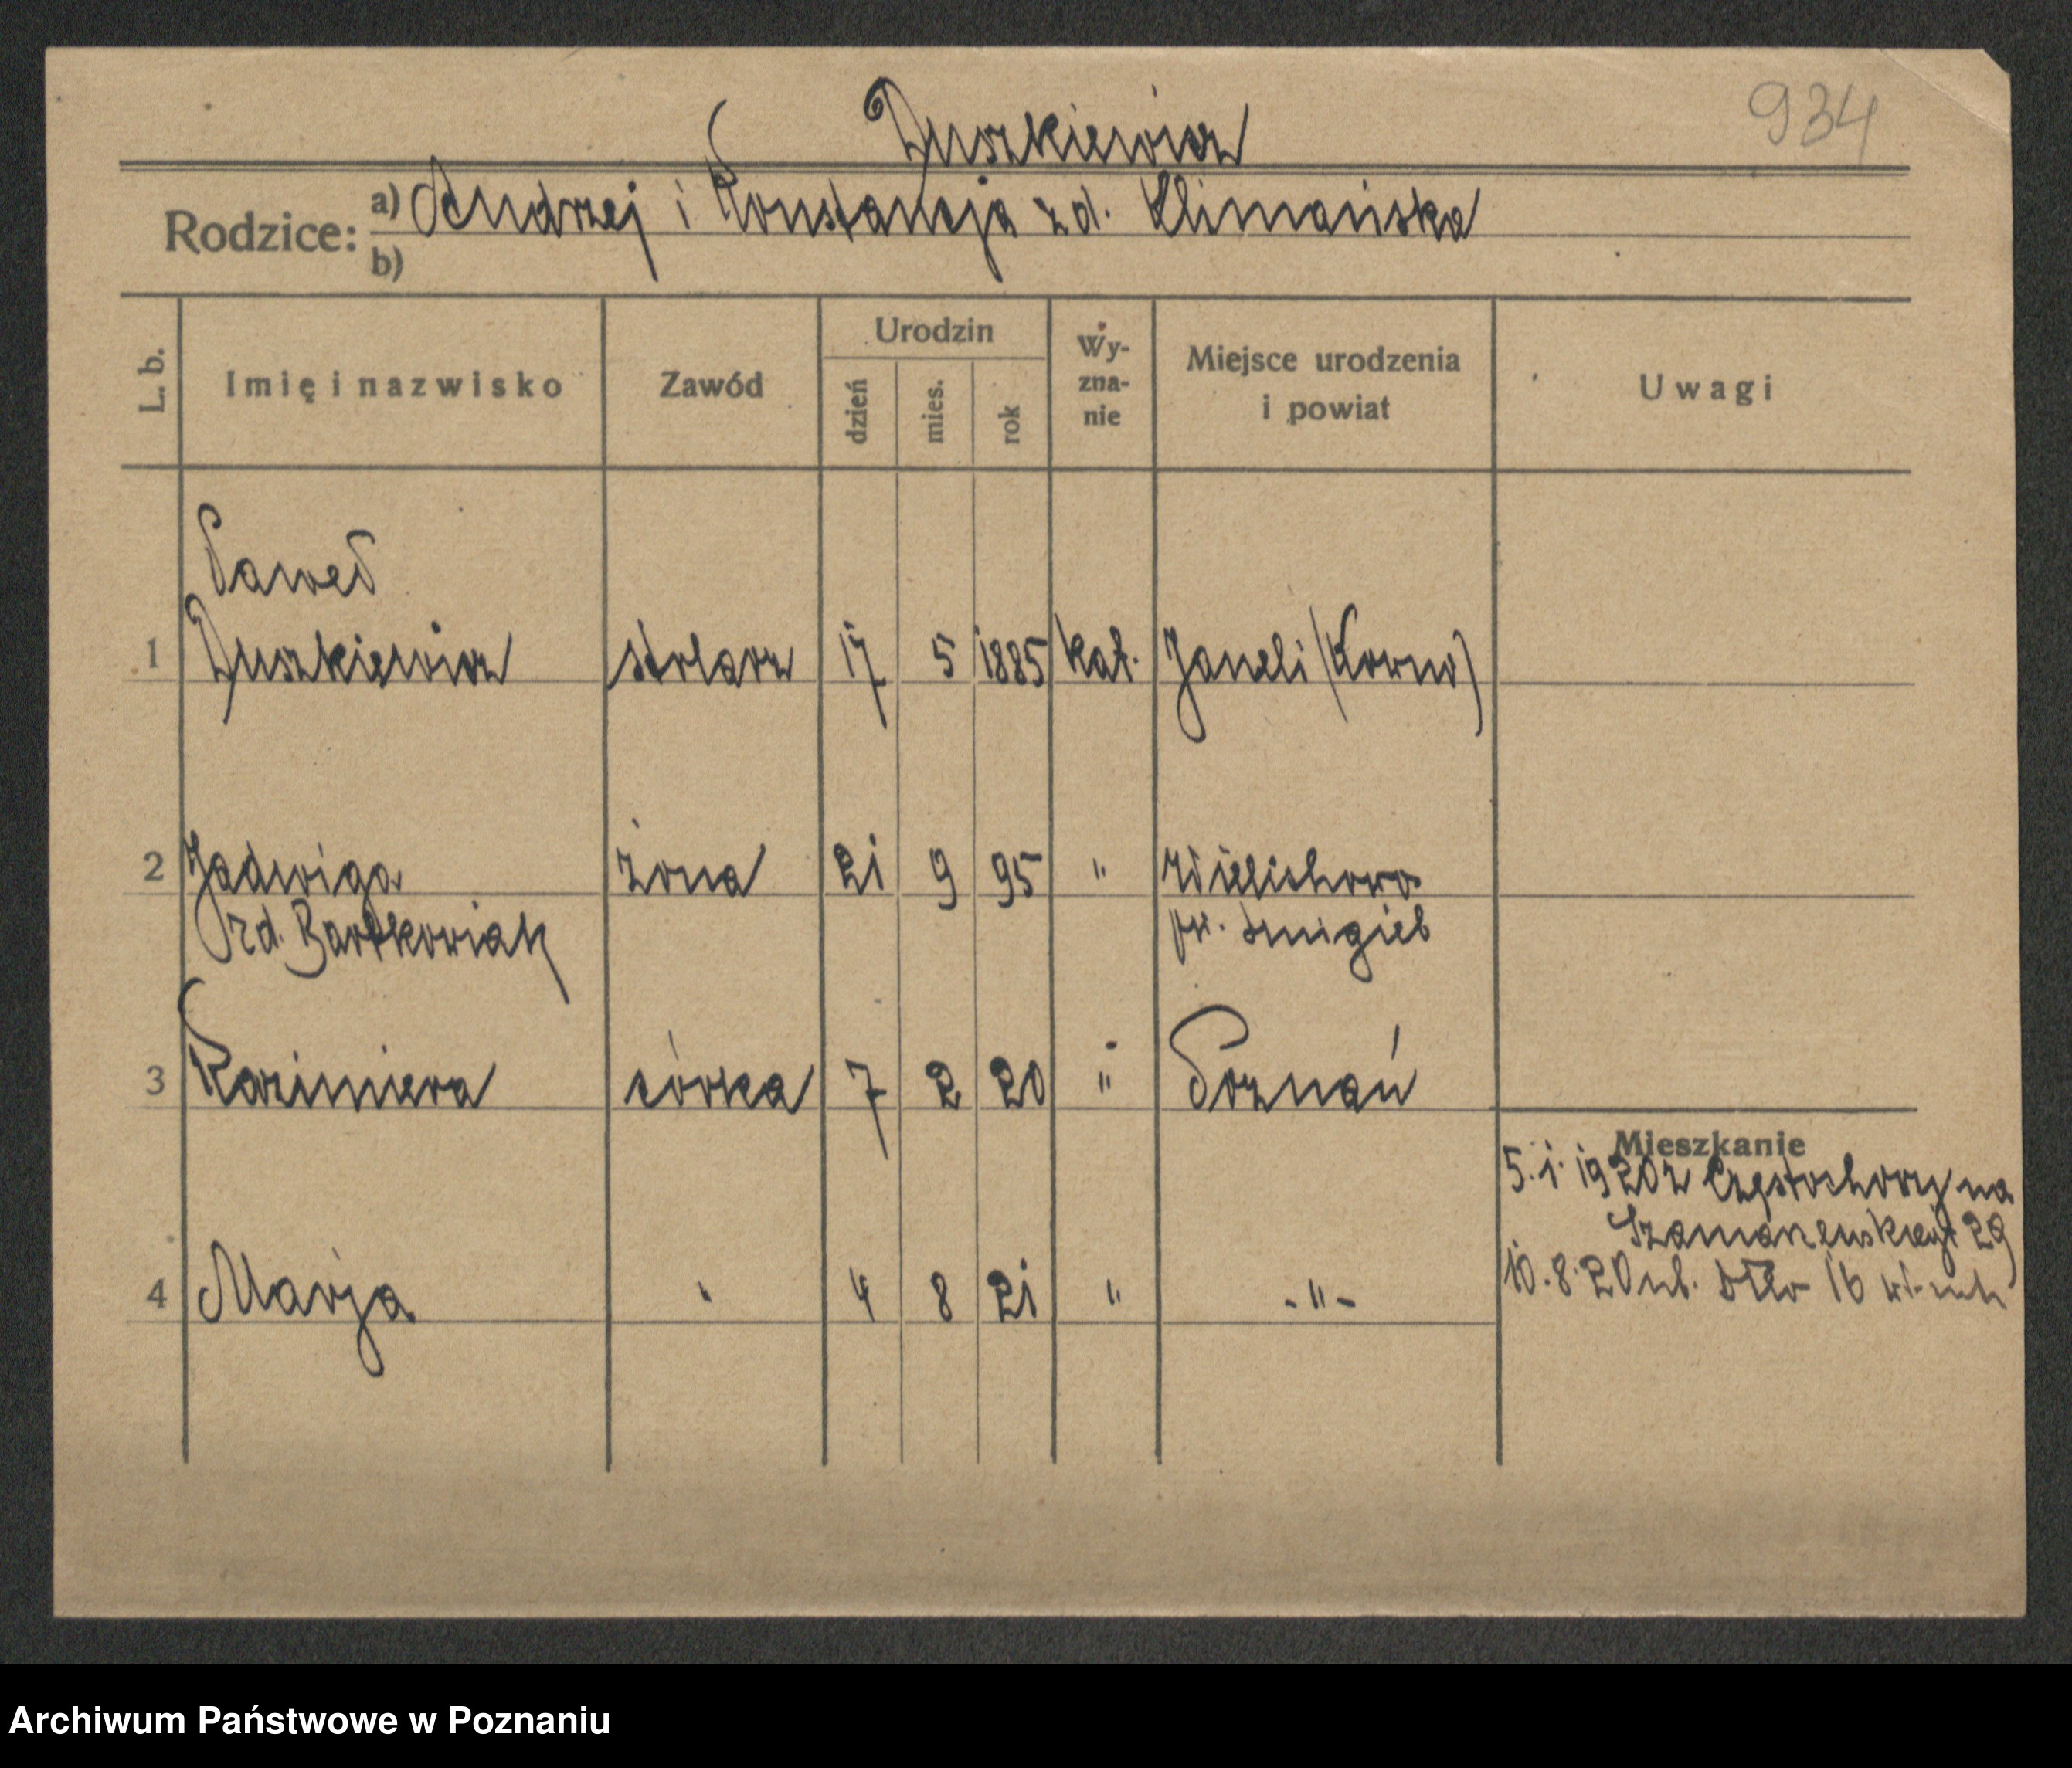 934
Duszkiewicz
Rodzice: a) Andrzej i Konstancja zd. Klimańska
b)
L. b.
Imię i nazwisko
Zawód
Urodzin
dzień
mies.
rok
Wy-
zna-
nie
Miejsce urodzenia
i powiat
Uwagi
Paweł
1 Duszkiewicz stolarz 17 5 1885 kat. Janeli (Kowno)
2 Jadwiga żona 21 9 95 " Wielichowo
zd. Bartkowiak pw. Śmigiel
3 Kazimiera córka 7 2 20 " Poznań
Mieszkanie
5.1.1920 z Częstochowy na
29
4 Marja " 4 8 21 " -"-
10.8.20 16
Archiwum Państwowe w Poznaniu